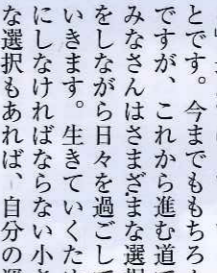 とです。今までももちろ
ですが、これから進む道
みなさんはさまざまな選
をしながら日々を過ごし
いきます。生きていくた
にしなければならない小
な選択もあれば、自分の